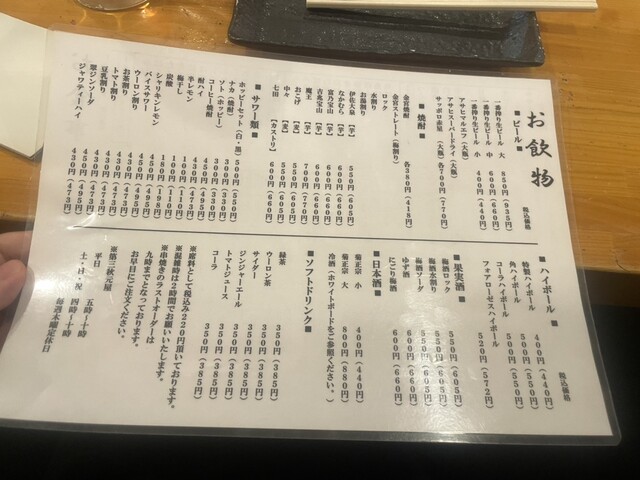 お飲物
税込価格
■ビール■
一番搾り生ビール 大 850円(935円)
一番搾り生ビール 中 600円(660円)
一番搾り生ビール 小 400円(440円)
アサヒマルエフ(大瓶)
アサヒスーパードライ(大瓶)
サッポロ赤星(大瓶) 各700円(770円)
■焼酎■
金宮焼酎
金宮ストレート(梅割り) 各380円(418円)
ロック
水割り
お湯割り
伊佐大泉【芋】 550円(605円)
なかむら【芋】 600円(660円)
富乃宝山【芋】 600円(660円)
吉兆宝山【芋】 600円(660円)
魔王【芋】 700円(770円)
おこげ【麦】 550円(605円)
中々【麦】 550円(605円)
七田【カストリ】 600円(660円)
■サワー類■
ホッピーセット(白・黒) 500円(550円)
ナカ(焼酎) 300円(330円)
ソト(ホッピー) 300円(330円)
コーヒー焼酎 450円(495円)
酎ハイ 400円(440円)
半レモン 100円(110円)
梅干し 100円(110円)
炭酸 180円(198円)
シャリキンレモン 450円(495円)
バイスサワー 450円(495円)
ウーロン割り 430円(473円)
お茶割り 430円(473円)
トマト割り 430円(473円)
豆乳割り 430円(473円)
翠ジンソーダ 450円(495円)
ジャワティーハイ 430円(473円)
税込価格
■ハイボール■
特製ハイボール 400円(440円)
角ハイボール 500円(550円)
コーラハイボール 500円(550円)
フォアローゼスハイボール 520円(572円)
■果実酒■
梅酒ロック 550円(605円)
梅酒水割り 550円(605円)
梅酒ソーダ 550円(605円)
ゆず酒 600円(660円)
にごり梅酒 600円(660円)
■日本酒■
菊正宗 小 400円(440円)
菊正宗 大 800円(880円)
冷酒(ホワイトボードをご参照ください。)
■ソフトドリンク■
緑茶 350円(385円)
ウーロン茶 350円(385円)
サイダー 350円(385円)
ジンジャーエール 350円(385円)
トマトジュース 350円(385円)
コーラ 350円(385円)
※席料として税込み220円頂いております。
※混雑時は2時間でお願いいたします。
※串焼きのラストオーダーは
九時までとなっております。
お早目にご注文ください。
※第三秋元屋
平日 五時〜十時
土・日・祝 四時〜十時
毎週木曜定休日